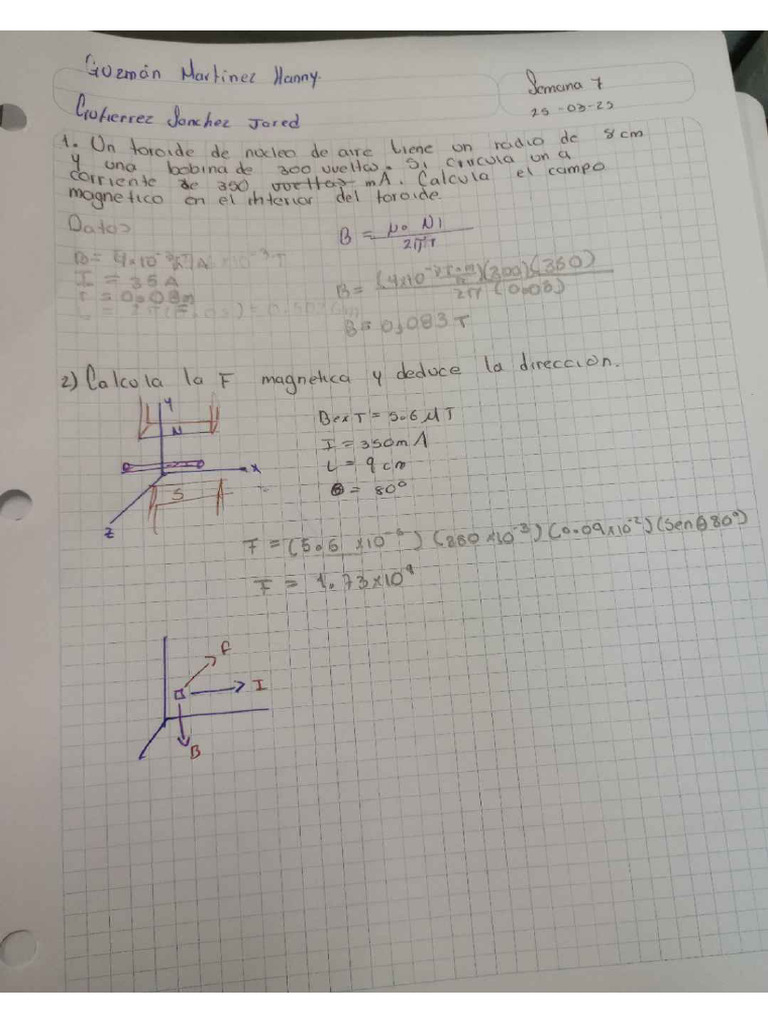 Guzmán Martinez Hanny.
Semana 7
Gutierrez Sanchez Jared
1. Un toroide de nucleo de aire tiene un radio de 8 cm
y una bobina de 300 vueltas. Si circula una
corriente de 350 vueltas mA. Calcula el campo
magnetico en el interior del toroide.
Datos
B = μ₀ N I / 2πr
I = 35 A
r = 0.08m
B = (300)(350) / 2π (0.08)
B = 0,083 T
2) Calcula la F magnetica y deduce la dirección.
Y
N
X
S
Z
Bext = 5.6 μT
I = 350mA
L = 9 cm
θ = 80°
F = (5.6 ×10⁻⁶) (10⁻³) (0.09×10⁻²) (Senθ80°)
F = 1.73×10
F
I
B